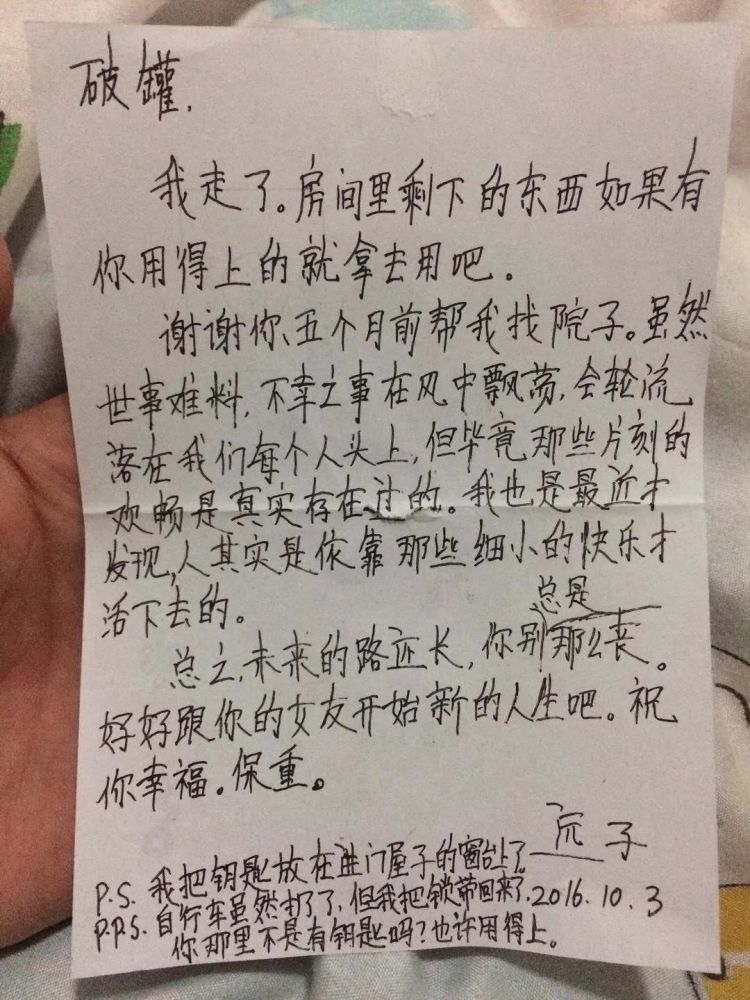 破罐，
我走了。房间里剩下的东西如果有
你用得上的就拿去用吧。
谢谢你、五个月前帮我找院子。虽然
世事难料，不幸之事在风中飘荡，会轮流
落在我们每个人头上，但毕竟那些片刻的
欢畅是真实存在过的。我也是最近才
发现，人其实是依靠那些细小的快乐才
活下去的。
总之，未来的路还长，你别总是那么丧。
好好跟你的女友开始新的人生吧。祝
你幸福。保重。
子
P.S. 我把钥匙放在进门屋子的窗台上了
2016.10.3
P.P.S. 自行车虽然打了了，但我把锁带回来了，
你那里不是有钥匙吗？也许用得上。